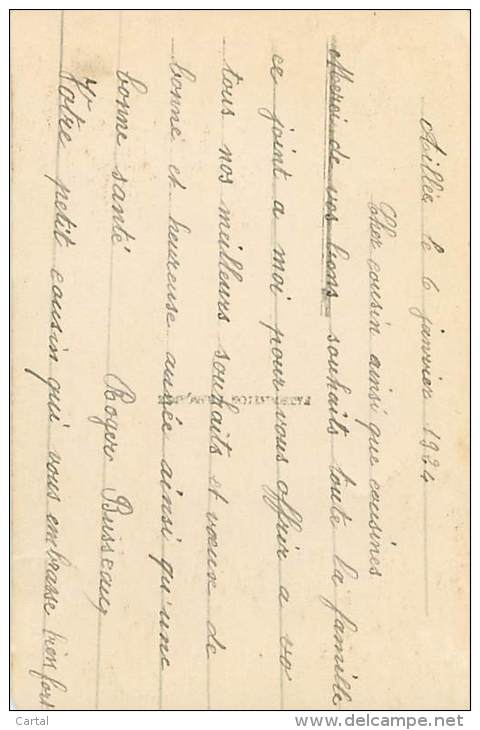 Aillés le 6 janvier 1924
Cher cousin ainsi que cousines
Merci de vos bons souhaits toute la famille
ce joint a moi pour vous offrir a vo
tous nos meilleurs souhaits et vœux de
bonne et heureuse année ainsi qu'une
bonne santé Roger Busseau
Votre petit cousin qui vous embrasse bien fort
FABRICATION FRANÇAISE
Cartal
delcampe.net